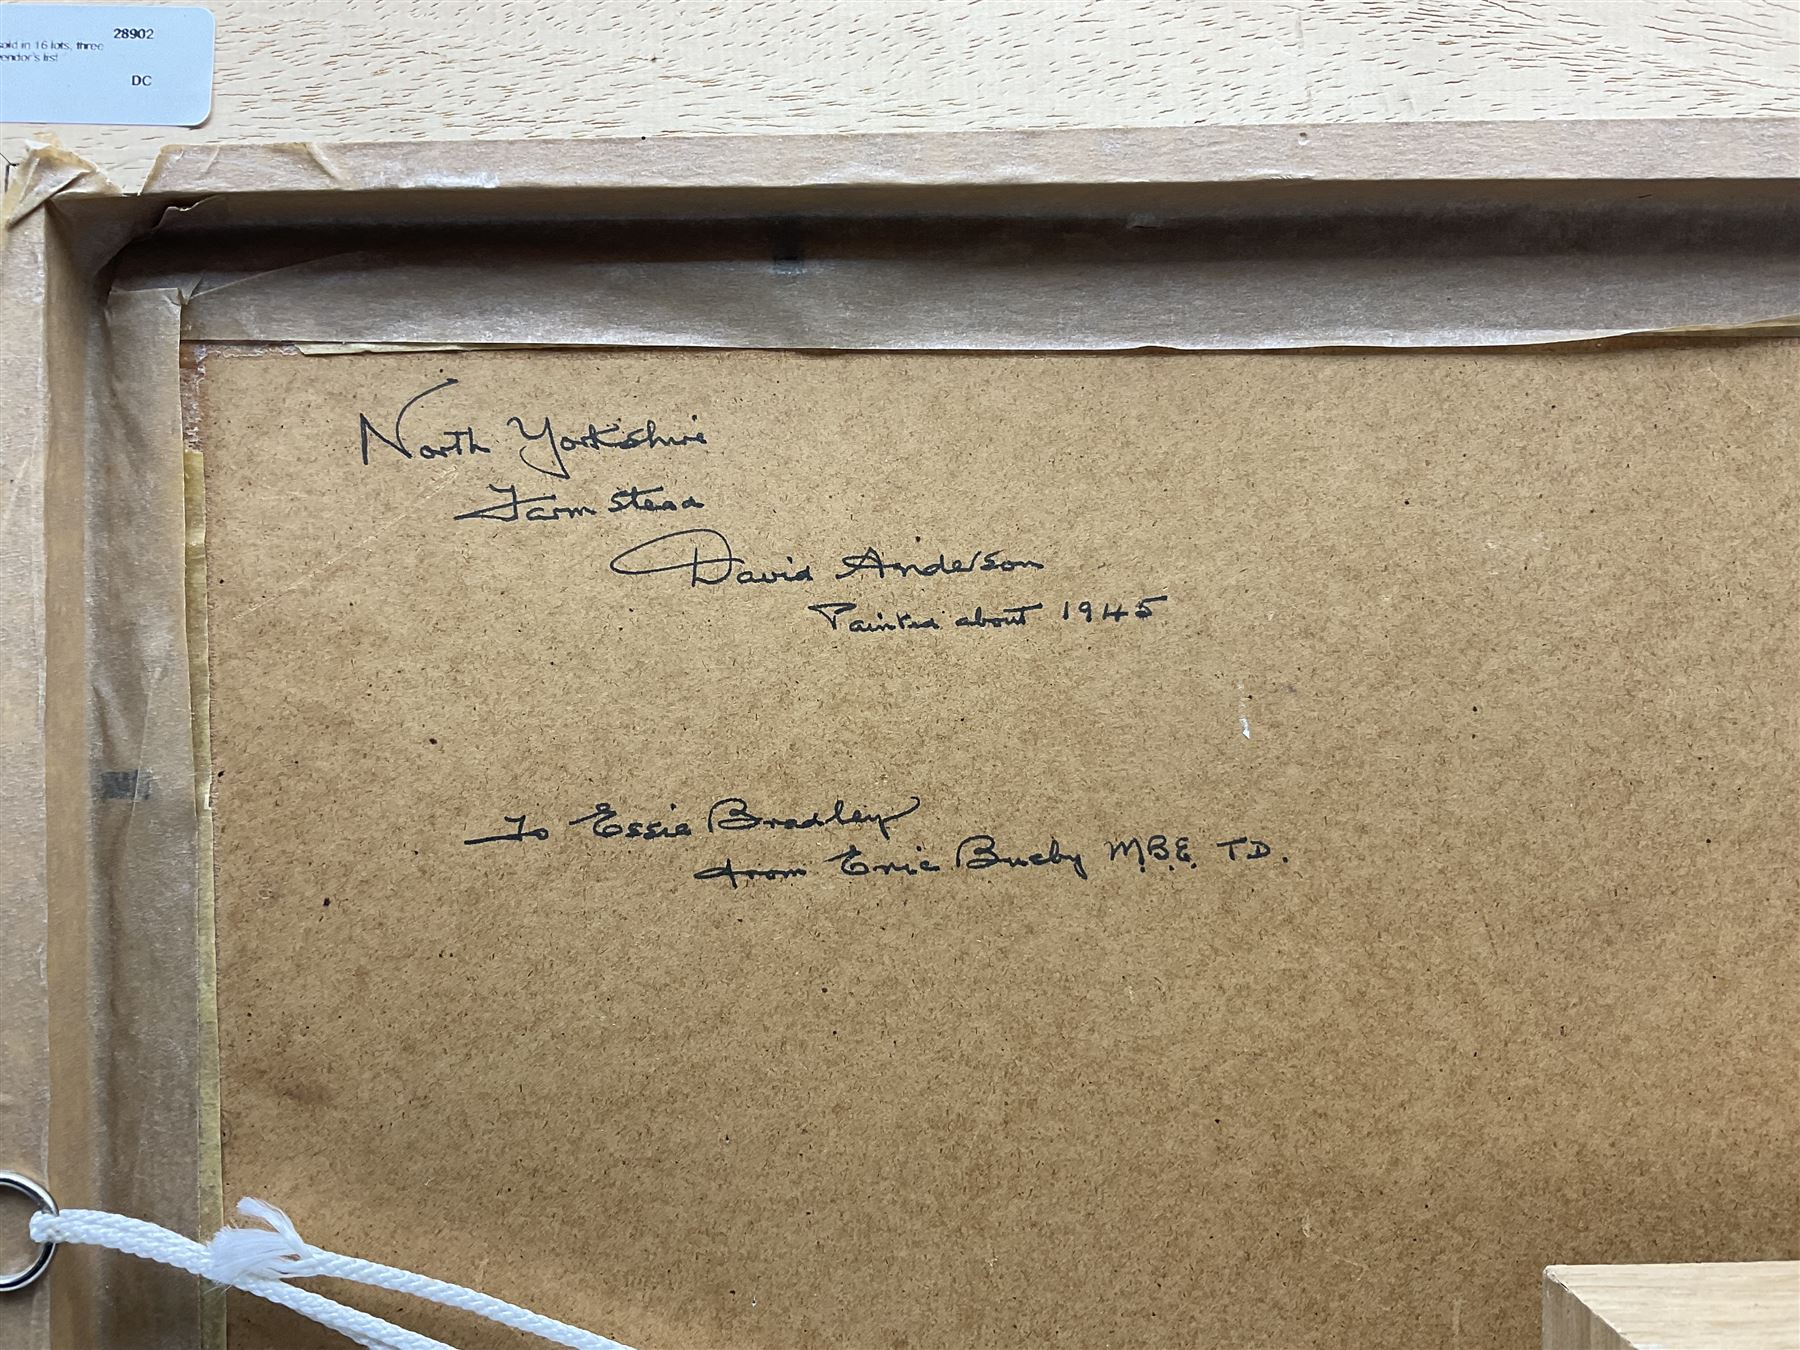 28902
sold in 16 lots, three
vendor's list
DC
North Yorkshire
Farmstead
David Anderson
Painted about 1945
To Essie Bradley
from Eric Busby M.B.E. T.D.